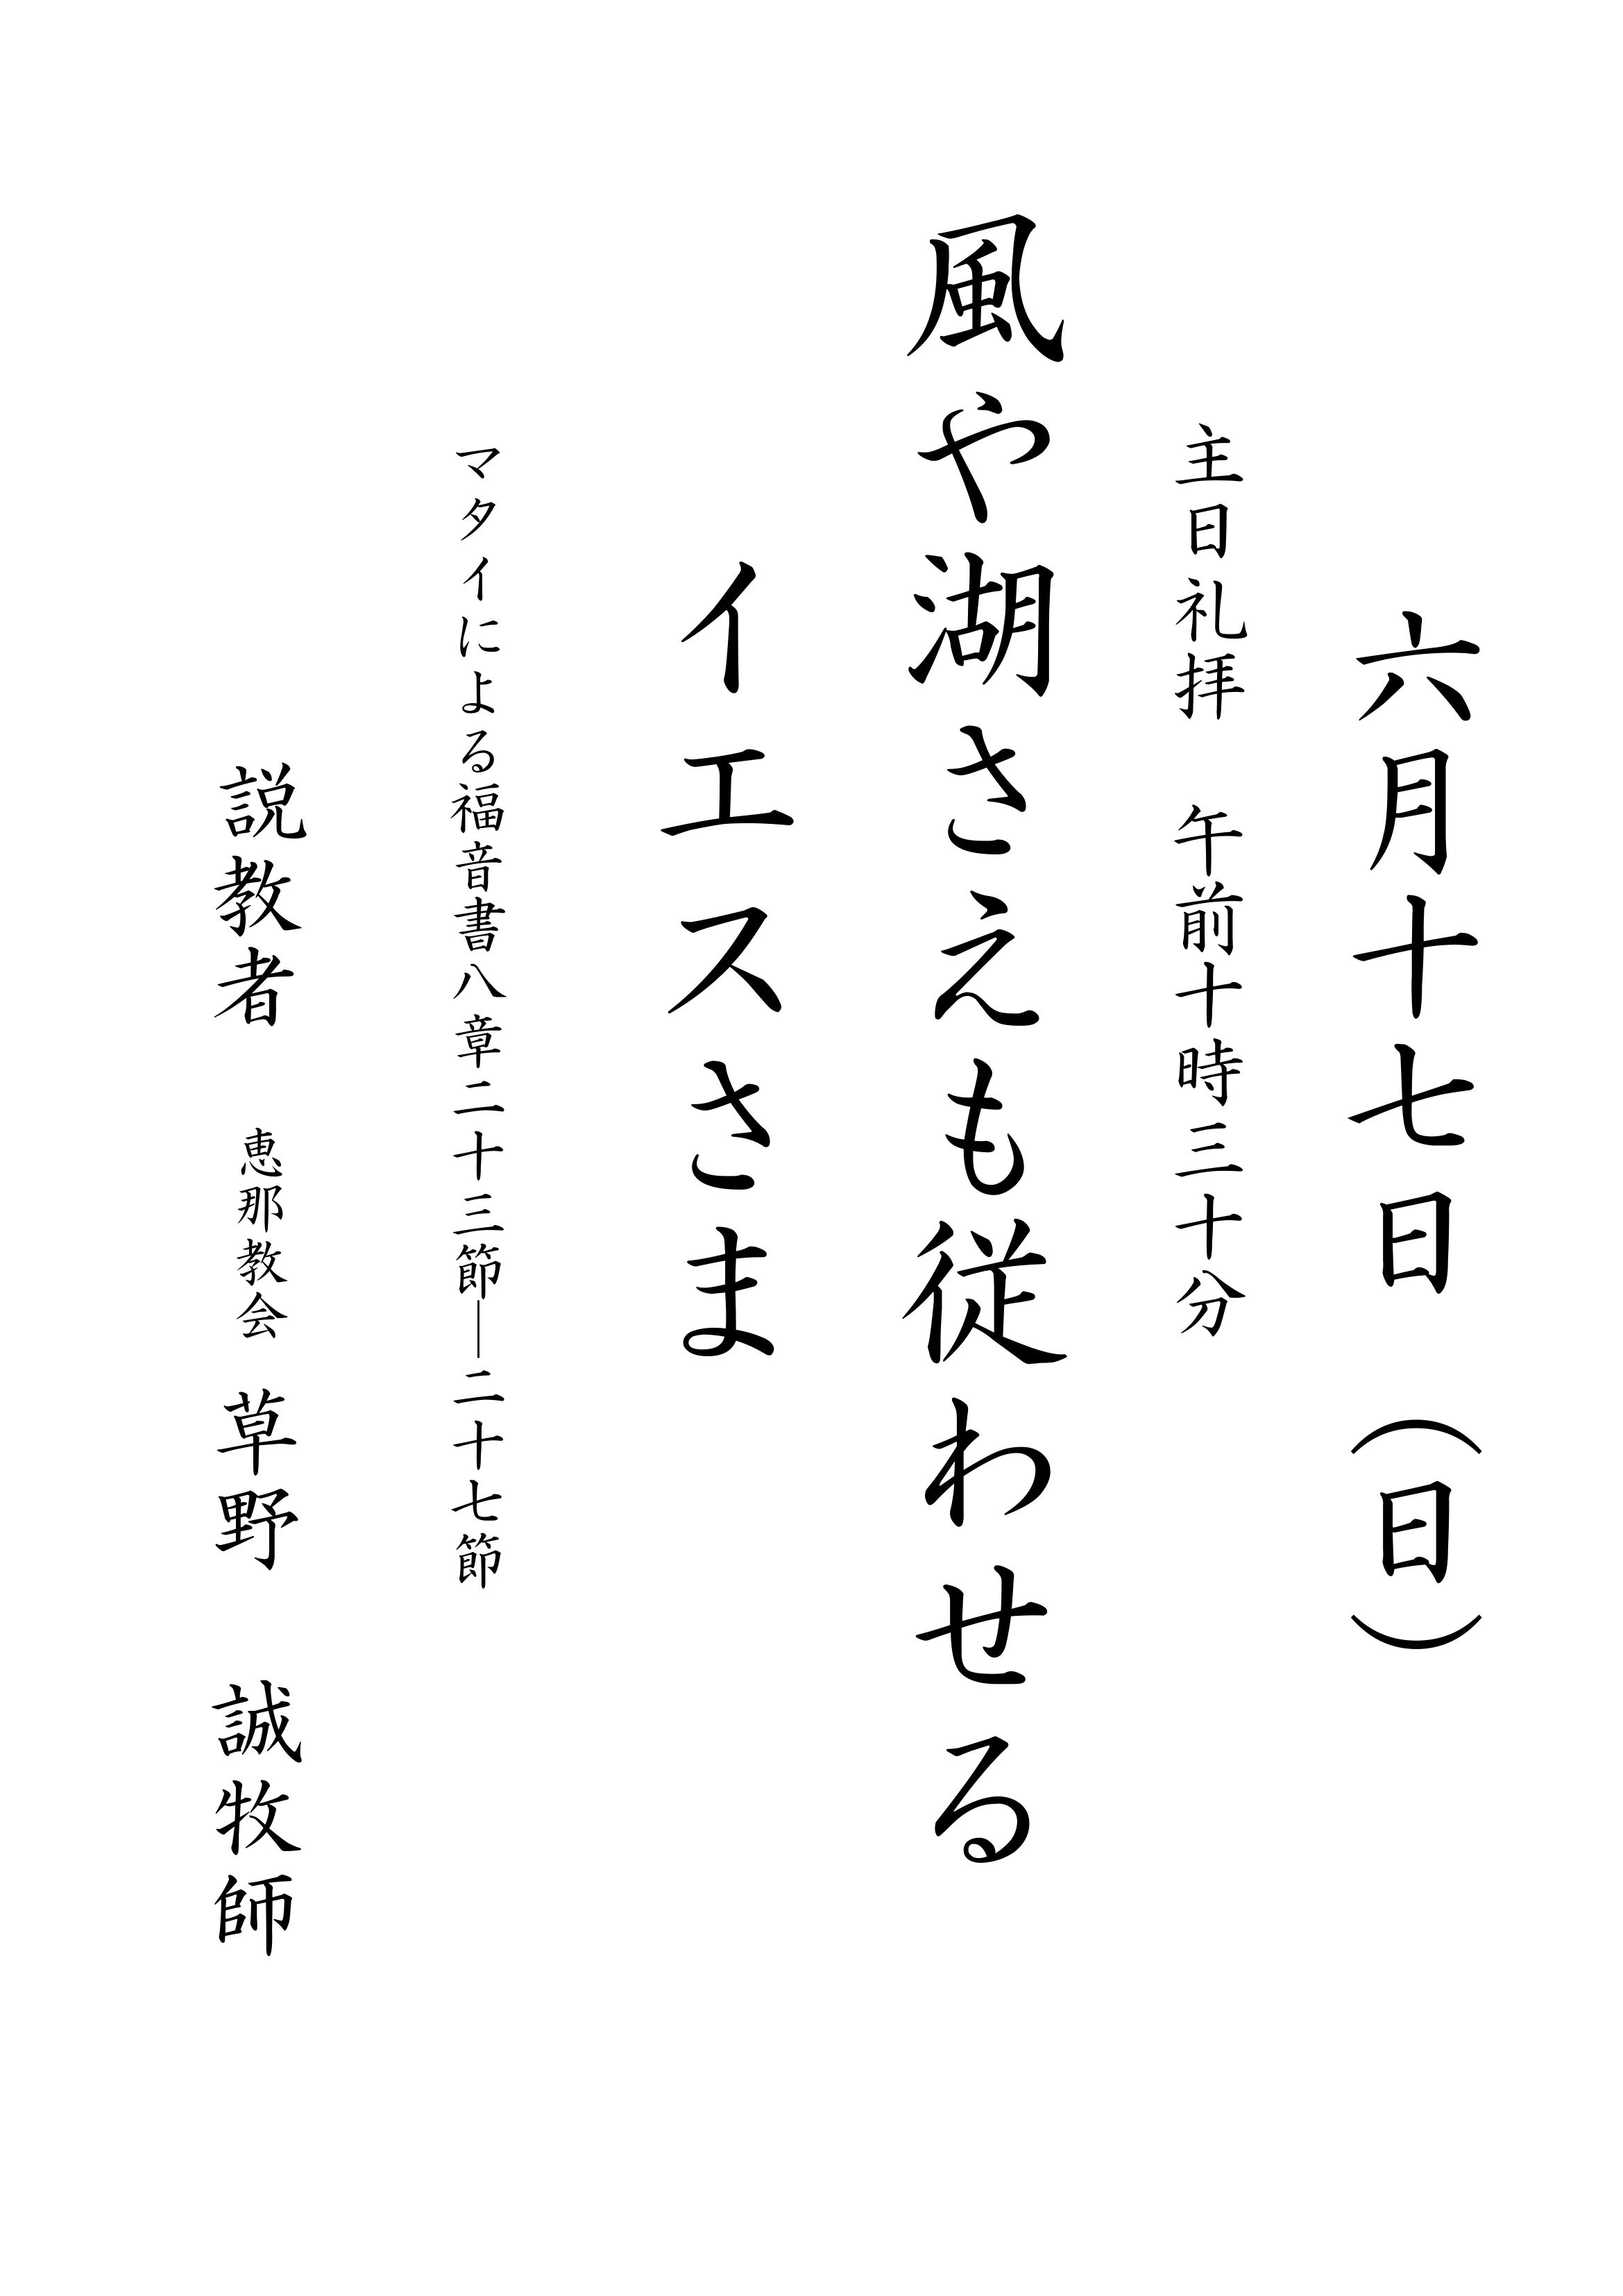 六月十七日（日）
主日礼拝　午前十時三十分
風や湖さえも従わせる
イエスさま
マタイによる福音書八章二十三節―二十七節
説教者　恵那教会　草野　誠牧師